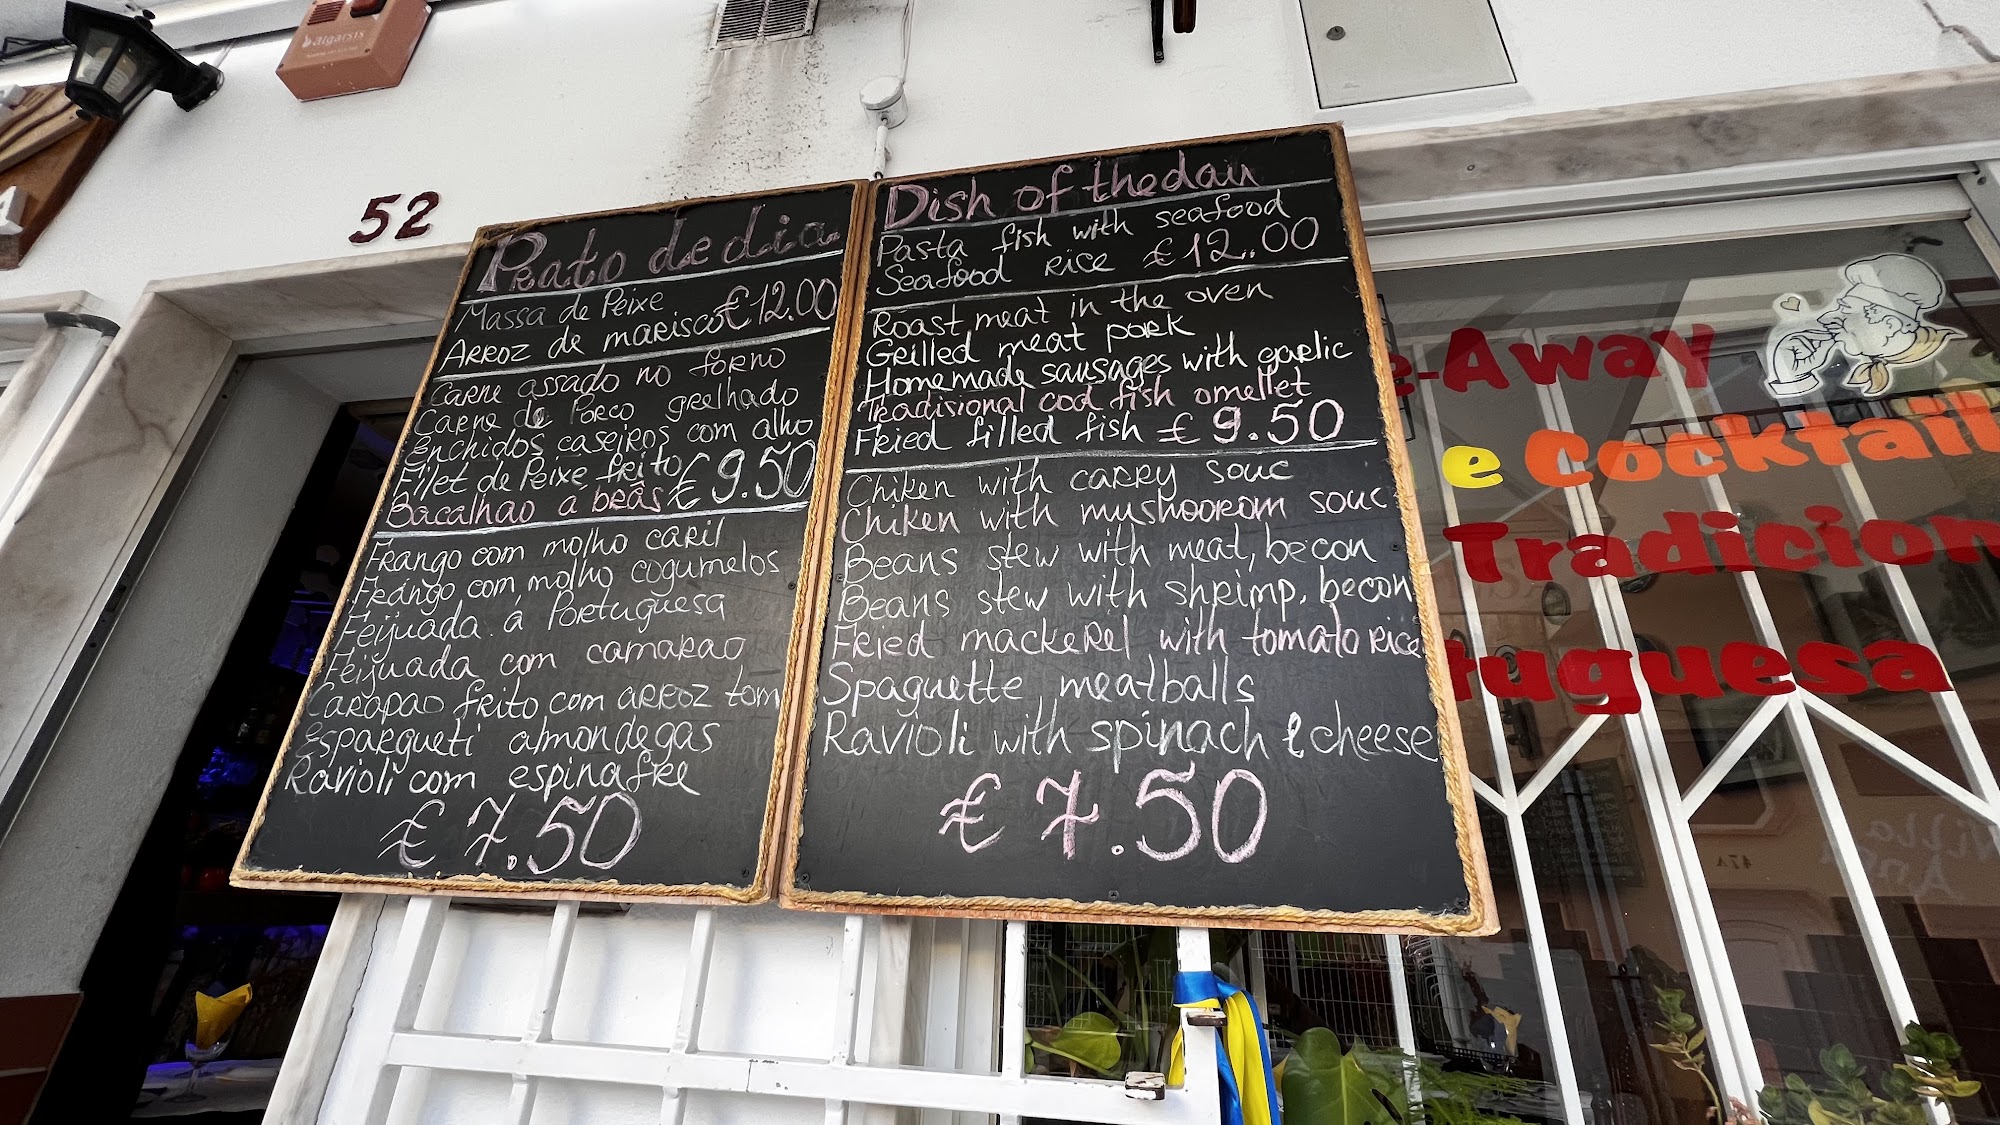 algarsis
52
Prato de dia
Massa de Peixe
Arroz de marisco €12.00
Carne assado no forno
Carne de Porco grelhado
Enchidos caseiros com alho
Filet de Peixe frito
Bacalhao a brâs € 9.50
Frango com molho caril
Frango com molho cogumelos
Feijuada á Portuguesa
Feijuada com camarao
Carapao frito com arroz tom
Espargueti almondegas
Ravioli com espinafre
€ 7.50
Dish of the dair
Pasta fish with seafood
Seafood rice €12.00
Roast meat in the oven
Grilled meat pork
Homemade sausages with garlic
Tradisional cod fish omellet
Fried filled fish € 9.50
Chiken with carry souc
Chiken with mushoorom souc
Beans stew with meat, becon
Beans stew with shrimp, becon
Fried mackerel with tomato rice
Spaguette meatballs
Ravioli with spinach & cheese
€ 7.50
e-Away
e Cocktail
Tradicion
tuguesa
47A